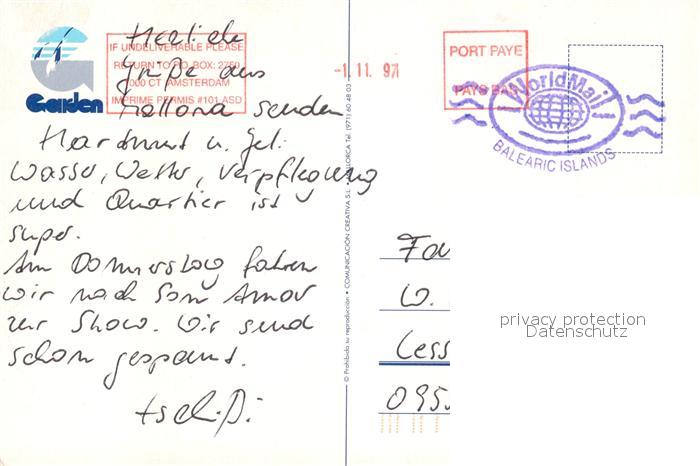 Herliche
Grüße aus
Mallorca senden
Hartmut u.
Wasser, Wetter, Verpflegung
und Quartier ist
super.
Am Donnerstag fahren
wir nach Son Amar
zur Show. Wir sind
schon gespannt.
Garden
IF UNDELIVERABLE PLEASE
RETURN TO PO BOX: 2760
1000 CT AMSTERDAM
IMPRIME PERMIS #101 ASD
-1. 11. 97
PORT PAYE
PAYS BAS
WorldMail
BALEARIC ISLANDS
© Prohibida su reproducción • COMUNICACIÓN CREATIVA S.L. • MALLORCA Tel. (971) 60 48 03
Fa
W.
Cess
095
privacy protection
Datenschutz